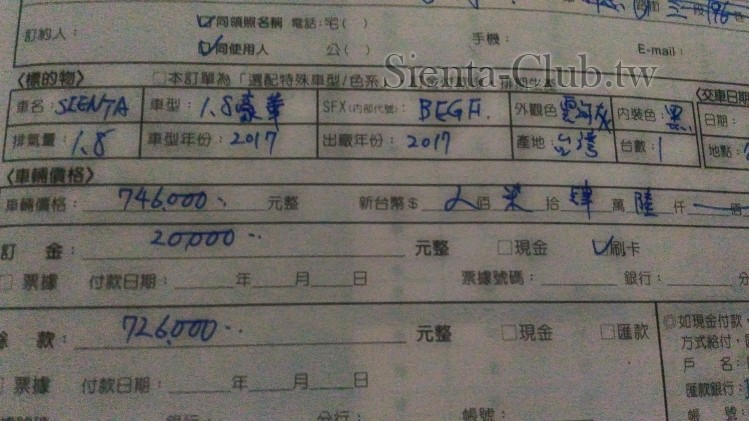 同領照名稱 電話:宅( )
訂約人: 同使用人 公( ) 手機: E-mail:
Sienta-Club.tw
〈標的物〉 □本訂單為「選配特殊車型/色系 〈交車日期
車名: SIENTA 車型: 1.8豪華 SFX(內部代號): BEGH. 外觀色: 雲河灰 內裝色: 黑 日期:
排氣量: 1.8 車型年份: 2017 出廠年份: 2017 產地: 台灣 台數: 1 地點:
〈車輛價格〉
車輛價格: 746,000.- 元整 新台幣$ 佰 柒 拾 肆 萬 陸 仟
訂 金: 20,000.- 元整 □現金 刷卡
□票據 付款日期: 年 月 日 票據號碼: 銀行: 分
餘 款: 726,000.- 元整 □現金 □匯款 ◎如現金付款,
方式給付,
票據 付款日期: 年 月 日 戶 名:
匯款銀行:
銀行: 分行: 帳號: 帳 號: